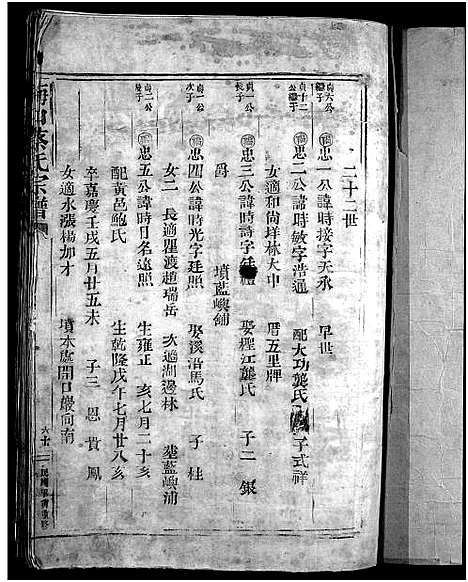 二十二世
貞六公
繼子
忠一公諱時接字天承 早世
貞十二
公繼子
忠二公諱時敏字浩通 配大功龔氏 子式祥
女適和尚垟林大中 厝五里牌
貞一公
長子
忠三公諱時詩字廷 娶壢江龔氏 子二 銀
爵 墳藍嶼舖
貞一公
次子
忠四公諱時光字廷照 娶溪沿馬氏 子 桂
女二 長適瞿渡趙瑞岳 次適湖邊林 塟藍嶼浦
貞二公
長子
忠五公諱時日名遠照 生雍正 亥七月二十亥
配黄邑鮑氏 生乾隆戊午七月廿八亥
卒嘉慶壬戌五月廿五未 子三 恩 貴 鳳
女適水漲楊加才 墳木處開口巖向南
蔡氏宗譜
民國 重修